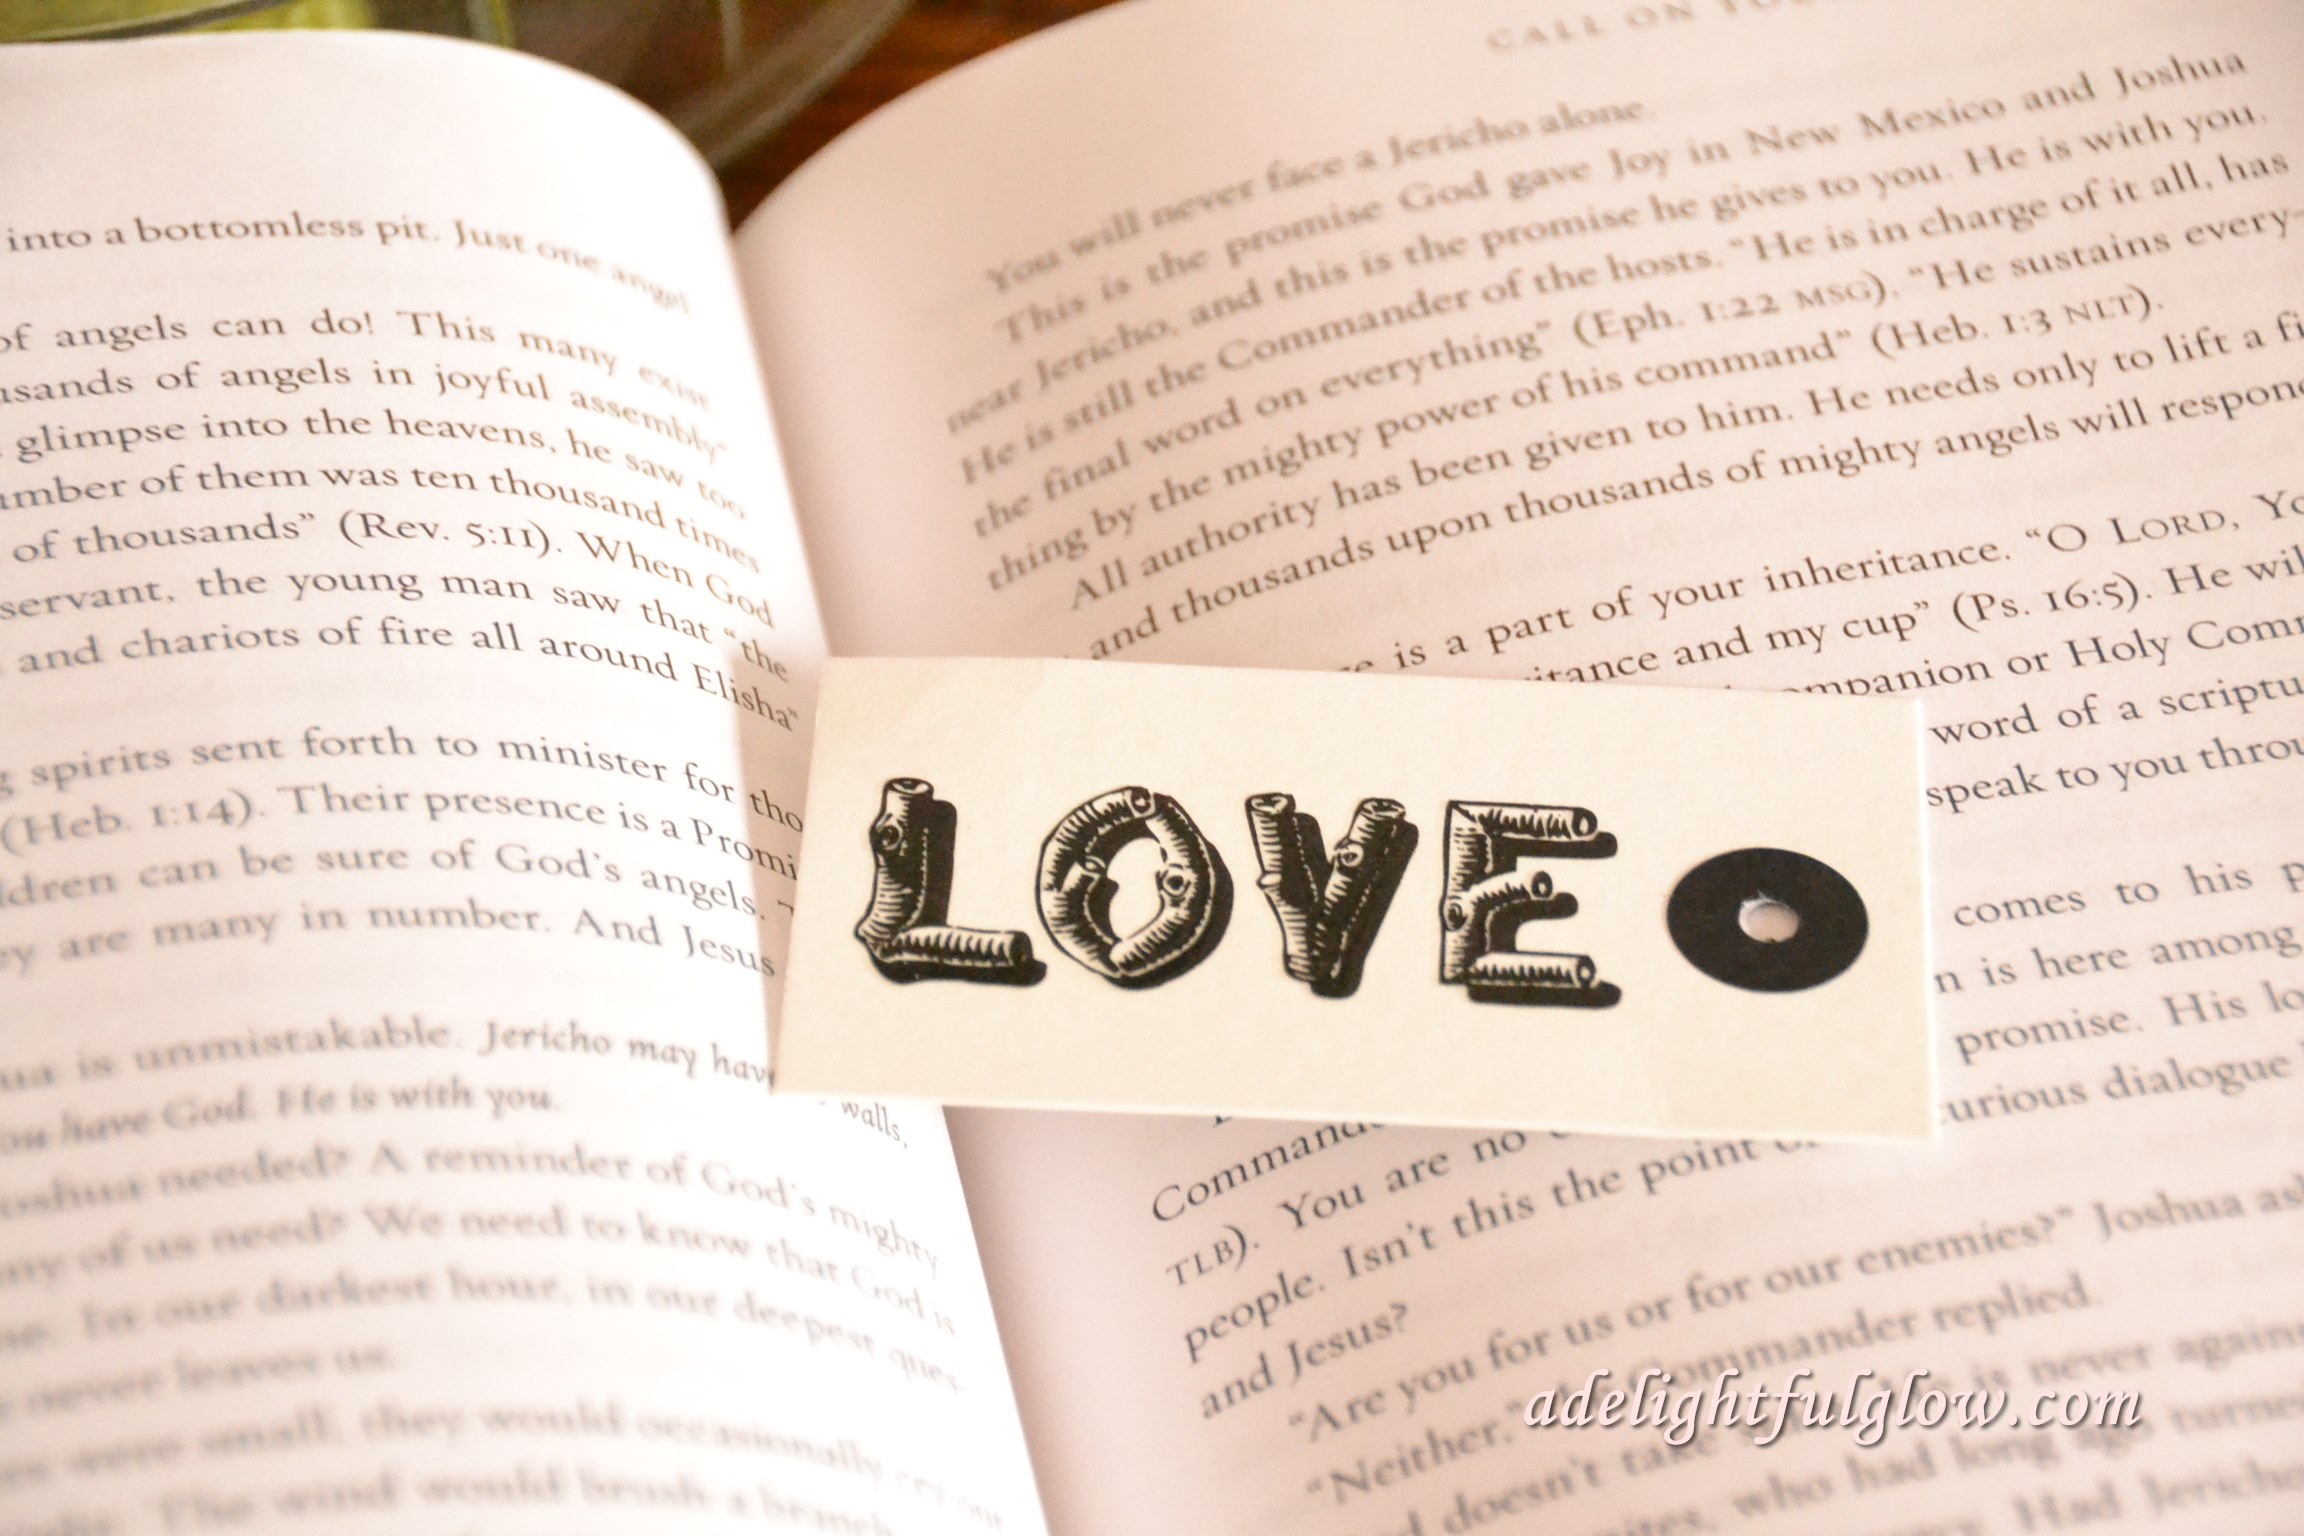 into a bottomless pit. Just one angel
of angels can do! This many exist
usands of angels in joyful assembly"
glimpse into the heavens, he saw too
umber of them was ten thousand times
of thousands" (Rev. 5:11). When God
servant, the young man saw that "the
and chariots of fire all around Elisha"
spirits sent forth to minister for tho
(Heb. 1:14). Their presence is a Promi
ldren can be sure of God's angels.
ey are many in number. And Jesus
ua is unmistakable. Jericho may have
walls,
ou have God. He is with you.
oshua needed? A reminder of God's mighty
ny of us need? We need to know that God is
ne. In our darkest hour, in our deepest ques-
never leaves us.
were small, they would occasionally cry out
The wind would brush a branch
CALL ON YOU
You will never face a Jericho alone.
This is the promise God gave Joy in New Mexico and Joshua
near Jericho, and this is the promise he gives to you. He is with you.
He is still the Commander of the hosts. "He is in charge of it all, has
the final word on everything" (Eph. 1:22 MSG). "He sustains every-
thing by the mighty power of his command" (Heb. 1:3 NLT).
All authority has been given to him. He needs only to lift a fi
and thousands upon thousands of mighty angels will respon
is a part of your inheritance. "O LORD, Yo
itance and my cup" (Ps. 16:5). He wil
ompanion or Holy Com
word of a scriptu
speak to you throu
LOVE
comes to his p
n is here among
promise. His lo
curious dialogue
Command
TLB). You are no
people. Isn't this the point
and Jesus?
"Are you for us or for our enemies?" Joshua as
"Neither," the Commander replied.
doesn't take is never against
mites, who had long ago turne
Had Jericho
adelightfulglow.com